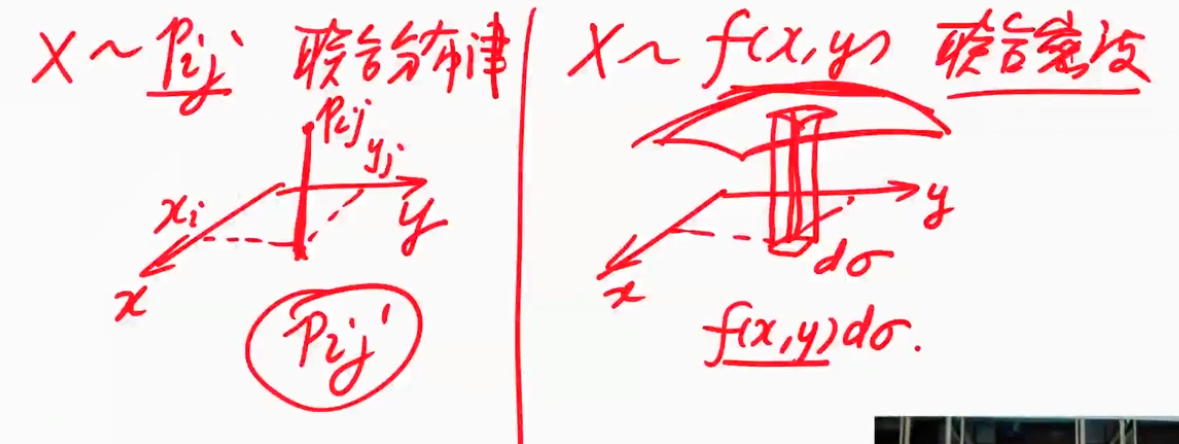 X ~ Pij 联合分布律
Pij
yj
xi
y
x
Pij
X ~ f(x,y) 联合密度
y
dσ
x
f(x,y)dσ.